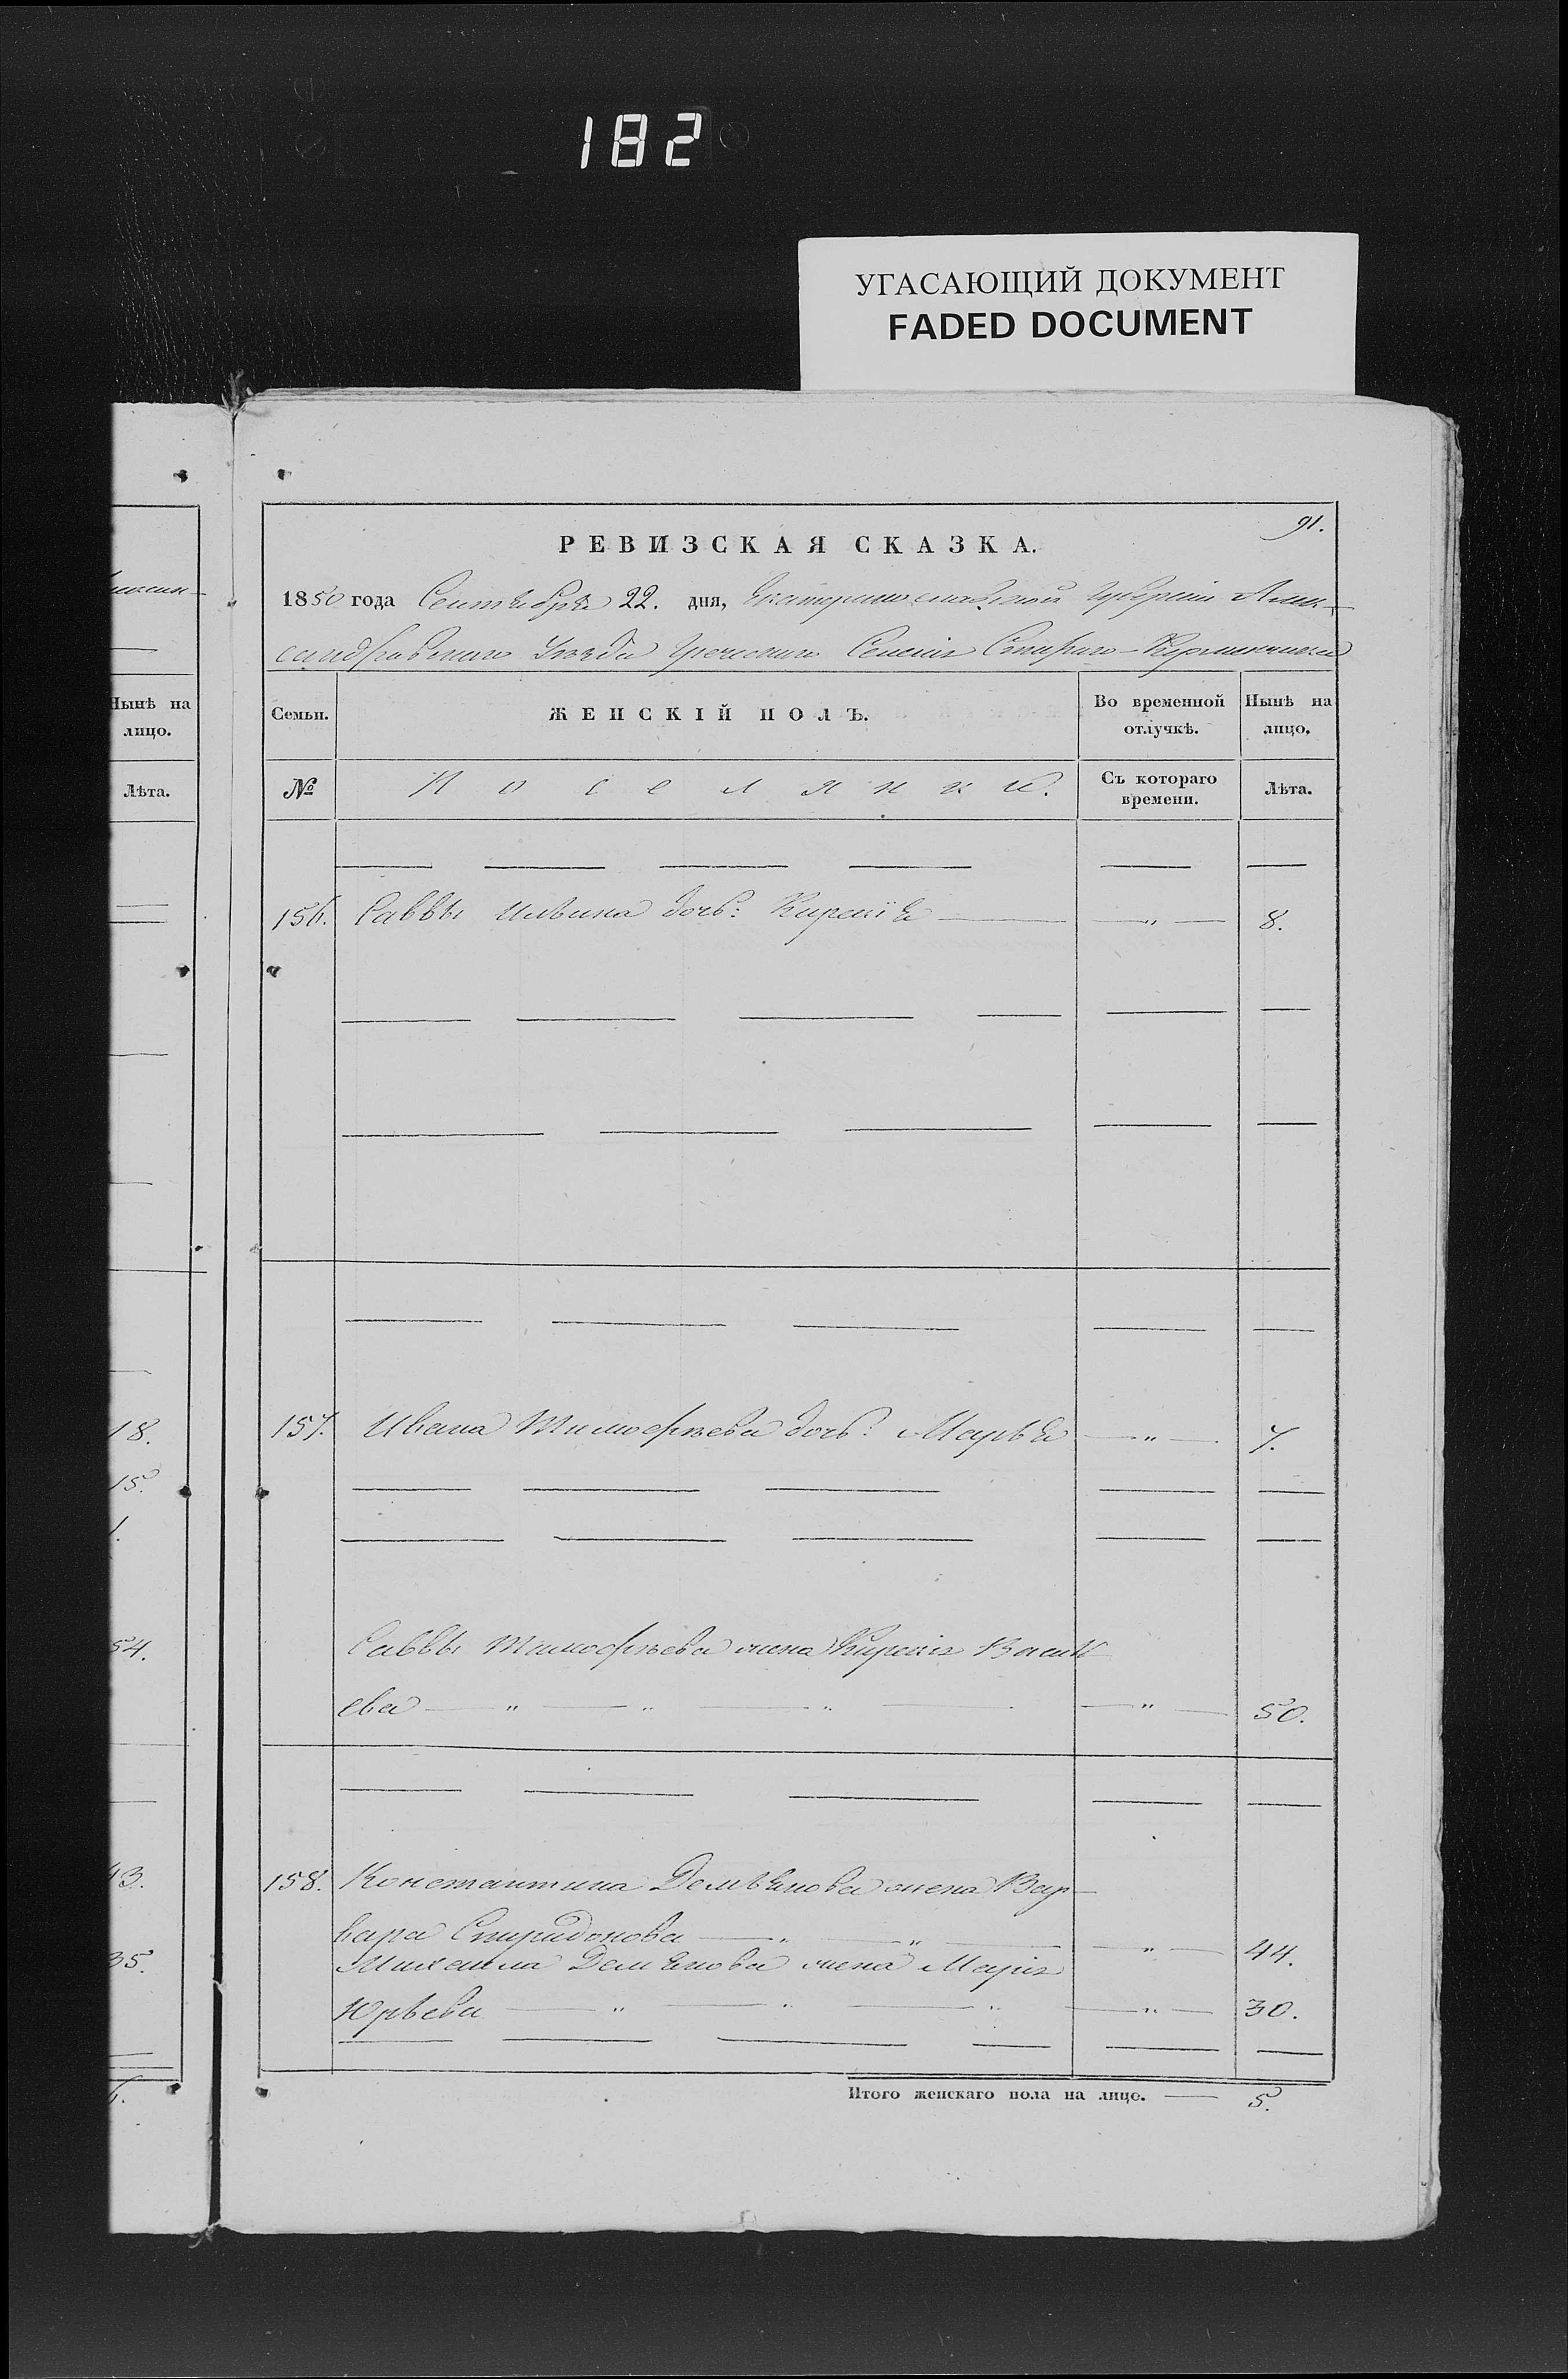 182
УГАСАЮЩИЙ ДОКУМЕНТ
FADED DOCUMENT
91.
РЕВИЗСКАЯ СКАЗКА.
1850 года Сентября 22. дня, Екатеринославской Губернiи Алек-
сандровскаго Уѣзда Греческаго Селенiя Стараго-
Семьи.
ЖЕНСКIЙ ПОЛЪ.
Во временной отлучкѣ.
Нынѣ на лицо.
№
Поселянки.
Съ котораго времени.
Лѣта.
156. Саввы Ильина дочь: " 8.
157. Ивана Тимофѣева дочь: Марья " 7.
Саввы Тимофѣева жена Васил
ева " " " " 50.
158. Константина Демьянова жена Вар-
вара Спиридонова " " " 44.
Михаила Демьянова жена Марiя
Юрьева " " " " 30.
Итого женскаго пола на лицо. 5.
Нынѣ на
лицо.
Лѣта.
18.
15.
1.
54.
43.
35.
6.